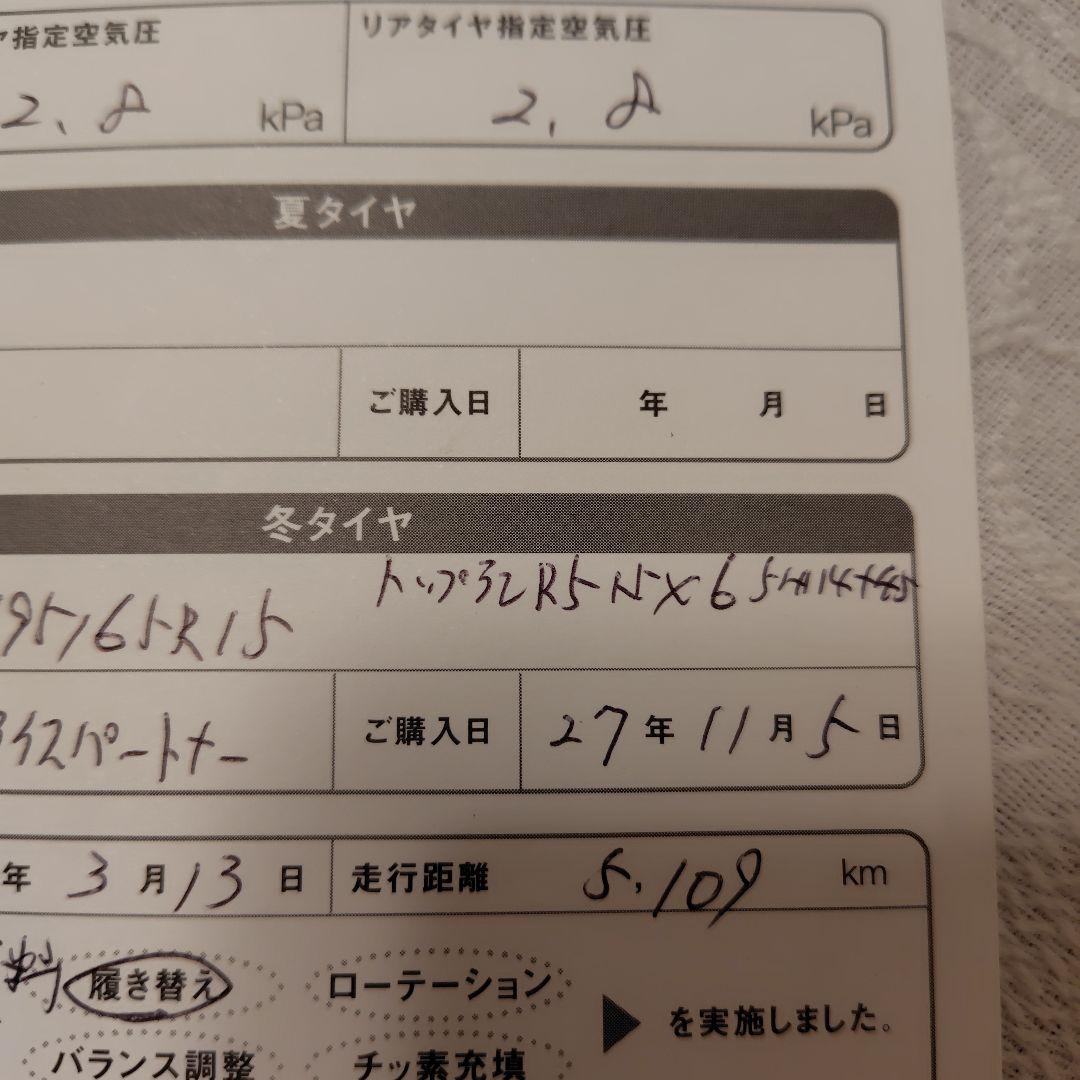 ヤ指定空気圧 リアタイヤ指定空気圧
2.8 kPa 2.8 kPa
夏タイヤ
ご購入日 年 月 日
冬タイヤ
トップ
95/65R15
アイスパートナー ご購入日 27年 11月 5日
年 3月 13日 走行距離 5,109 km
履き替え ローテーション
を実施しました。
バランス調整 チッ素充填